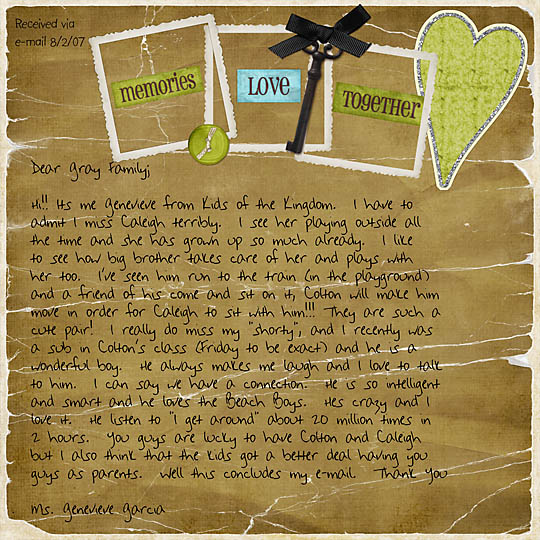 Received via
e-mail 8/2/07
memories
LOVE
TOGETHER
Dear Gray Family;
Hi!! Its me Genevieve from Kids of the Kingdom. I have to
admit I miss Caleigh terribly. I see her playing outside all
the time and she has grown up so much already. I like
to see how big brother takes care of her and plays with
her too. I've seen him run to the train (in the playground)
and a friend of his come and sit on it, Colton will make him
move in order for Caleigh to sit with him!!! They are such a
cute pair! I really do miss my "shorty", and I recently was
a sub in Colton's class (Friday to be exact) and he is a
wonderful boy. He always makes me laugh and I love to talk
to him. I can say we have a connection. He is so intelligent
and smart and he loves the Beach Boys. Hes crazy and I
love it. He listen to "I get around" about 20 million times in
2 hours. You guys are lucky to have Colton and Caleigh
but I also think that the kids got a better deal having you
guys as parents. Well this concludes my e-mail. Thank you
Ms. Genevieve Garcia